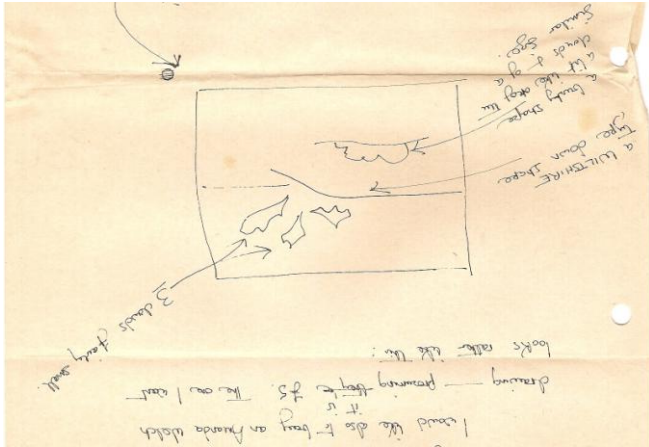 I would like also to buy an Amanda Walch
drawing — presuming they're £5. The one I want
it is
looks rather like this:
3 clouds fairly small.
a WILTSHIRE
type down shape
a bushy shape
a bit like the
clouds & of a
similar size.